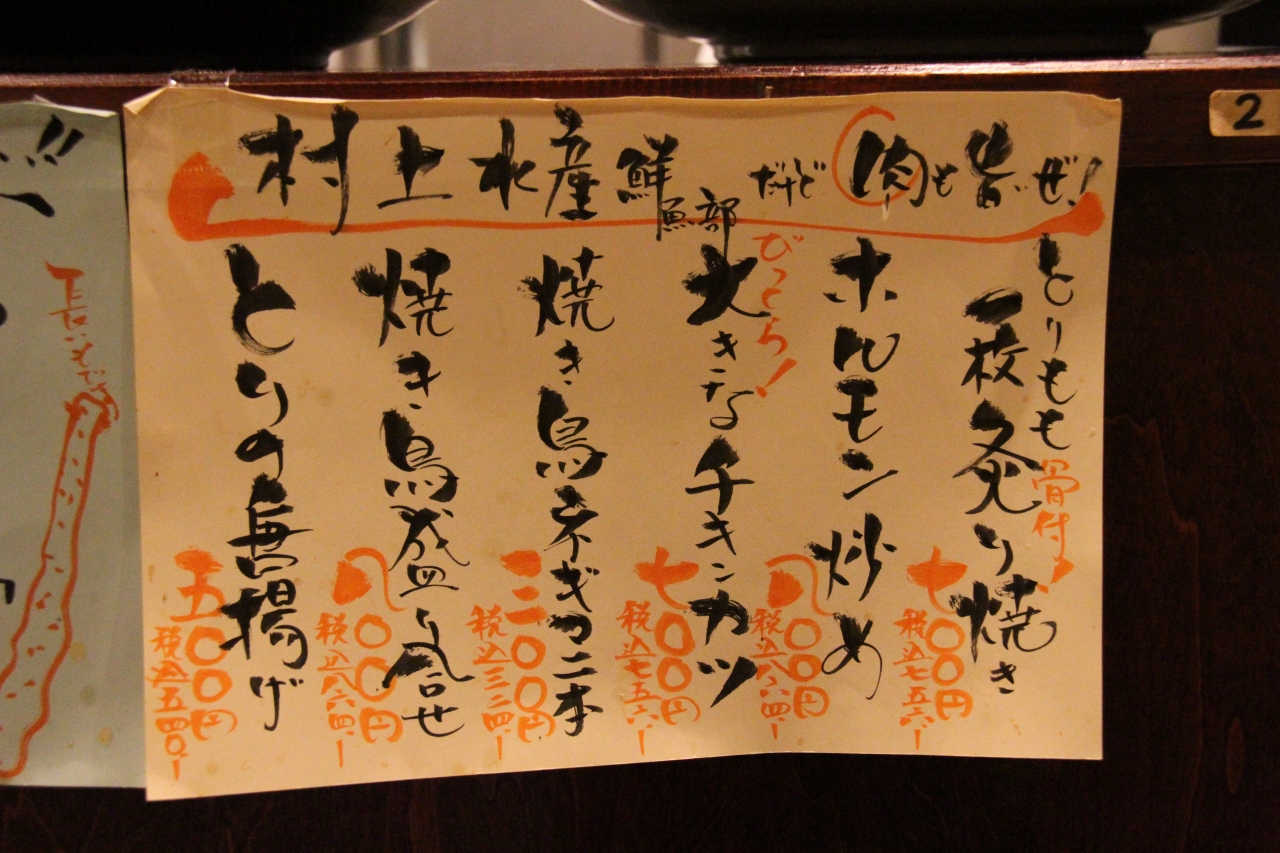 村上水産鮮魚部だけど肉も旨いぜ!
とりもも骨付!
一枚炙り焼き
七〇〇円
税込七五六.-
ホルモン炒め
八〇〇円
税込八六四.-
びっくら!
大きなチキンカツ
七〇〇円
税込七五六.-
焼き鳥ネギマ二本
三〇〇円
税込三二四.-
焼き鳥盛り合せ
八〇〇円
税込八六四.-
とりの唐揚げ
五〇〇円
税込五四〇.-
長いもです
2